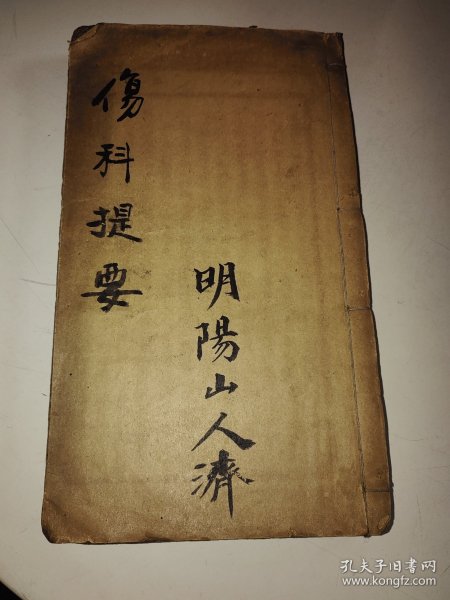 傷科提要
明陽山人濟
孔夫子旧书网
www.kongfz.com